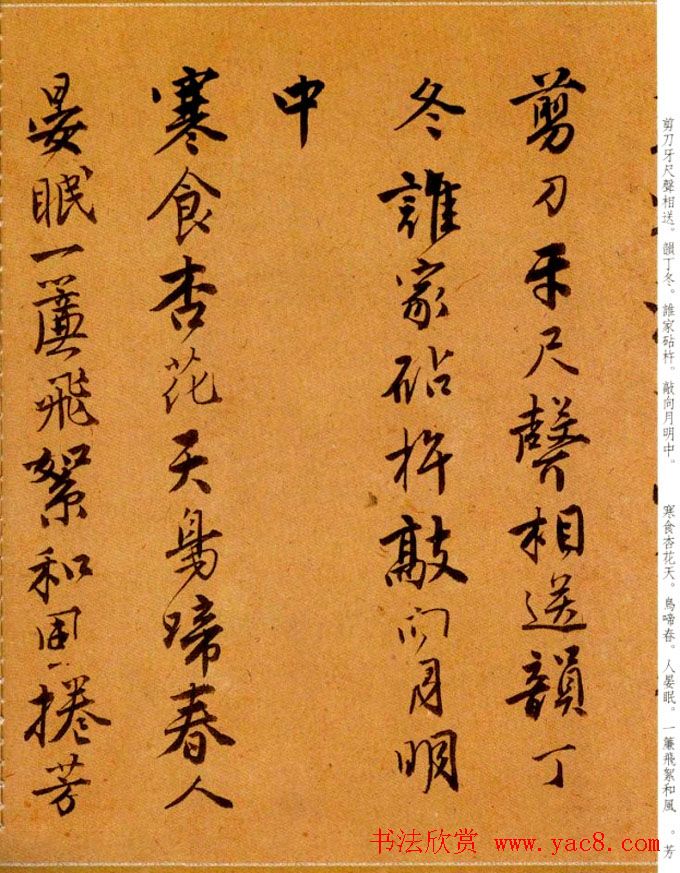 剪刀牙尺聲相送。韻丁冬。誰家砧杵。敲向月明中。　寒食杏花天。鳥啼春。人晏眠。一簾飛絮和風　。芳
剪刀牙尺聲相送韻丁
冬誰家砧杵敲向月明
中
寒食杏花天鳥啼春人
晏眠一簾飛絮和風捲芳
书法欣赏 www.yac8.com